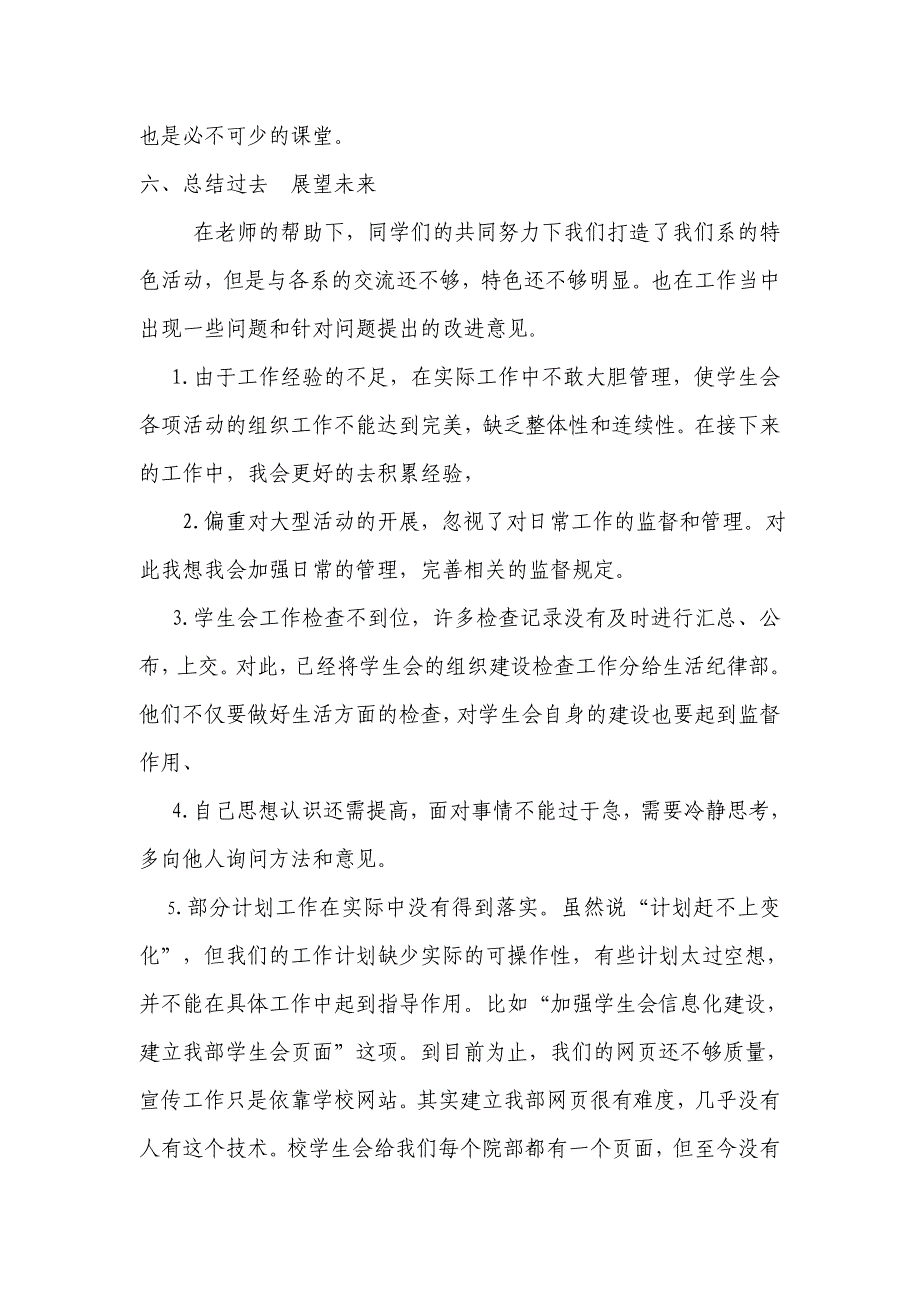 也是必不可少的课堂。
六、总结过去　展望未来
在老师的帮助下，同学们的共同努力下我们打造了我们系的特
色活动，但是与各系的交流还不够，特色还不够明显。也在工作当中
出现一些问题和针对问题提出的改进意见。
1.由于工作经验的不足，在实际工作中不敢大胆管理，使学生会
各项活动的组织工作不能达到完美，缺乏整体性和连续性。在接下来
的工作中，我会更好的去积累经验，
2.偏重对大型活动的开展，忽视了对日常工作的监督和管理。对
此我想我会加强日常的管理，完善相关的监督规定。
3.学生会工作检查不到位，许多检查记录没有及时进行汇总、公
布，上交。对此，已经将学生会的组织建设检查工作分给生活纪律部。
他们不仅要做好生活方面的检查，对学生会自身的建设也要起到监督
作用、
4.自己思想认识还需提高，面对事情不能过于急，需要冷静思考，
多向他人询问方法和意见。
5.部分计划工作在实际中没有得到落实。虽然说“计划赶不上变
化”，但我们的工作计划缺少实际的可操作性，有些计划太过空想，
并不能在具体工作中起到指导作用。比如“加强学生会信息化建设，
建立我部学生会页面”这项。到目前为止，我们的网页还不够质量，
宣传工作只是依靠学校网站。其实建立我部网页很有难度，几乎没有
人有这个技术。校学生会给我们每个院部都有一个页面，但至今没有